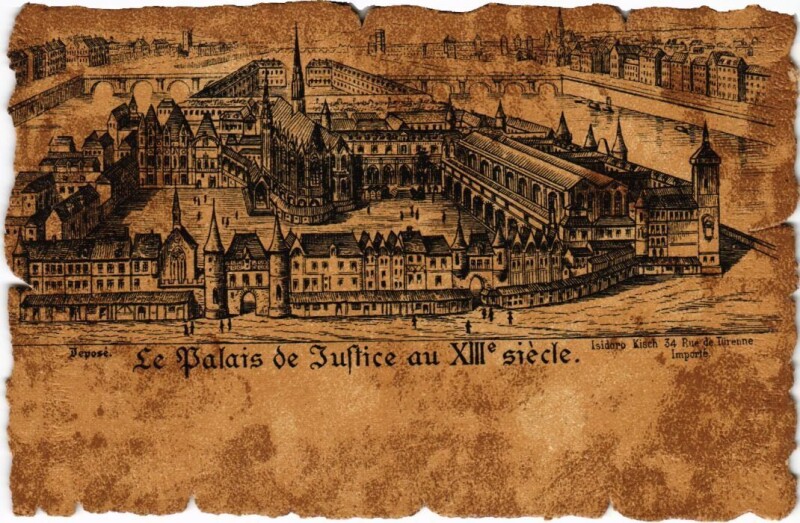 Déposé.
Le Palais de Justice au XIIIe siècle.
Isidoro Kisch 34 Rue de Turenne
Importé